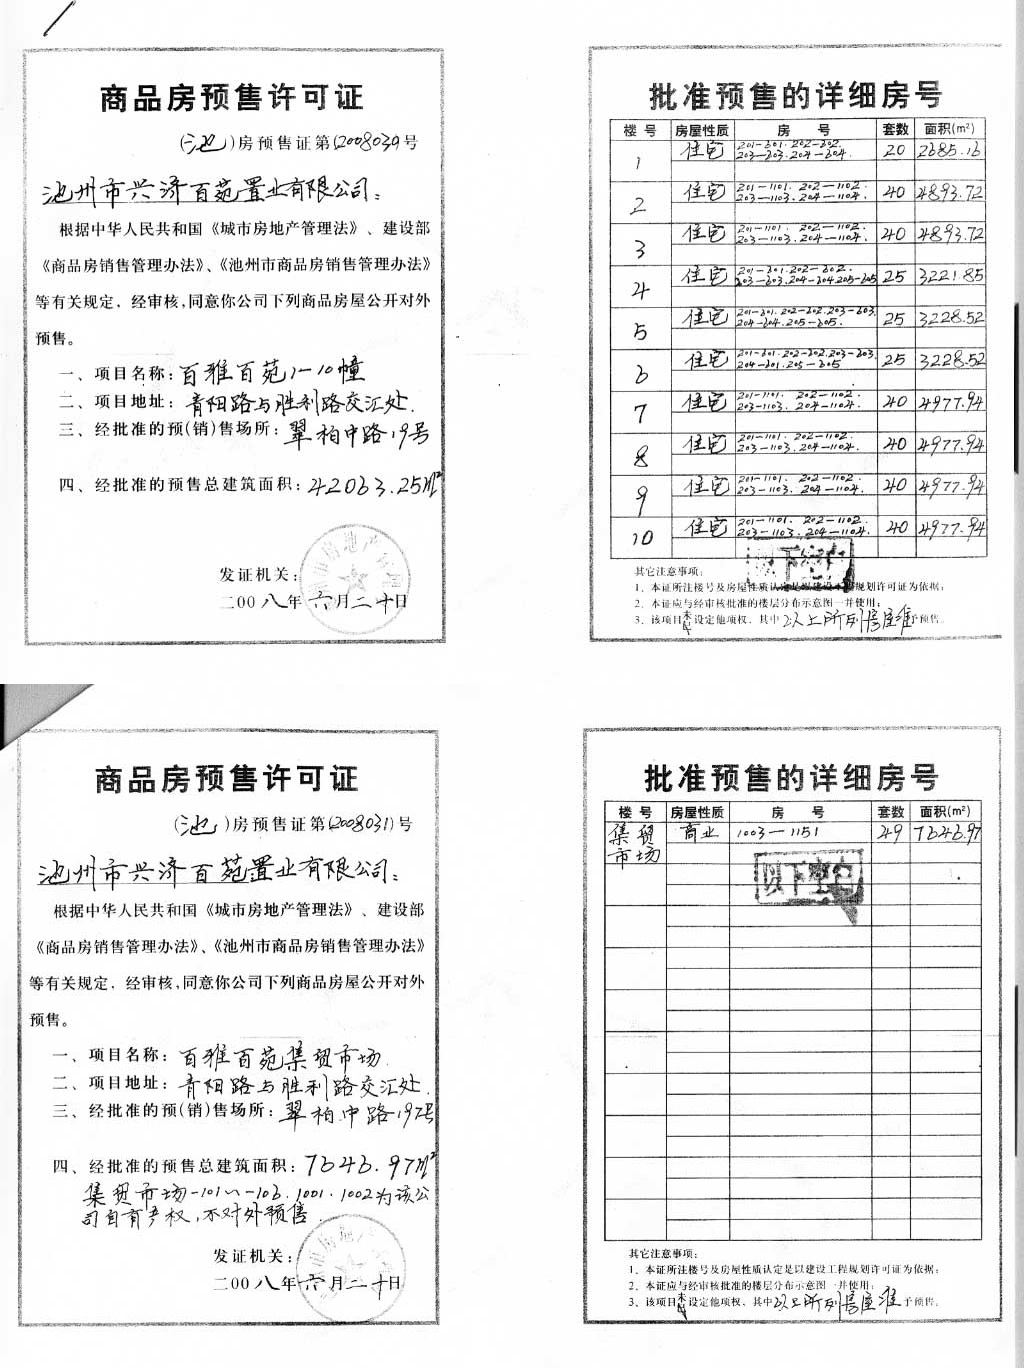 商品房预售许可证
（池）房预售证第（2008030）号
池州市兴济百苑置业有限公司：
根据中华人民共和国《城市房地产管理法》、建设部
《商品房销售管理办法》、《池州市商品房销售管理办法》
等有关规定，经审核，同意你公司下列商品房屋公开对外
预售。
一、项目名称：百雅百苑1-10幢
二、项目地址：青阳路与胜利路交汇处.
三、经批准的预(销)售场所：翠柏中路19号
四、经批准的预售总建筑面积：42063.25m²
发证机关：
二00八年六月二十日
批准预售的详细房号
楼号 房屋性质 房号 套数 面积(m²)
1 住宅 201-601. 202-602. 203-603. 204-604. 20 2685.16
2 住宅 201-1101. 202-1102. 203-1103. 204-1104. 40 4893.72
3 住宅 201-1101. 202-1102. 203-1103. 204-1104. 40 4893.72
4 住宅 201-601. 202-602. 203-603. 204-604. 205-605 25 3221.85
5 住宅 201-601. 202-602. 203-603. 204-604. 205-605. 25 3228.52
6 住宅 201-601. 202-602. 203-603. 204-601. 205-605 25 3228.52
7 住宅 201-1101. 202-1102. 203-1103. 204-1104. 40 4977.94
8 住宅 201-1101. 202-1102. 203-1103. 204-1104. 40 4977.94
9 住宅 201-1101. 202-1102. 203-1103. 204-1104. 40 4977.94
10 住宅 201-1101. 202-1102. 203-1103. 204-1104. 40 4977.94
以下空白
其它注意事项：
1、本证所注楼号及房屋性质认定是以建设工程规划许可证为依据；
2、本证应与经审核批准的楼层分布示意图一并使用；
3、该项目未设定他项权、其中以上所列房屋准予预售。
商品房预售许可证
（池）房预售证第（2008031）号
池州市兴济百苑置业有限公司：
根据中华人民共和国《城市房地产管理法》、建设部
《商品房销售管理办法》、《池州市商品房销售管理办法》
等有关规定，经审核，同意你公司下列商品房屋公开对外
预售。
一、项目名称：百雅百苑集贸市场.
二、项目地址：青阳路与胜利路交汇处.
三、经批准的预(销)售场所：翠柏中路19号
四、经批准的预售总建筑面积：7646.97m²
集贸市场-101~-106.1001.1002为该公
司自有产权，不对外预售.
发证机关：
二00八年六月二十日
批准预售的详细房号
楼号 房屋性质 房号 套数 面积(m²)
集贸市场 商业 1003-1151 49 7646.97
以下空白
其它注意事项：
1、本证所注楼号及房屋性质认定是以建设工程规划许可证为依据；
2、本证应与经审核批准的楼层分布示意图一并使用；
3、该项目未设定他项权、其中以上所列房屋准予预售。